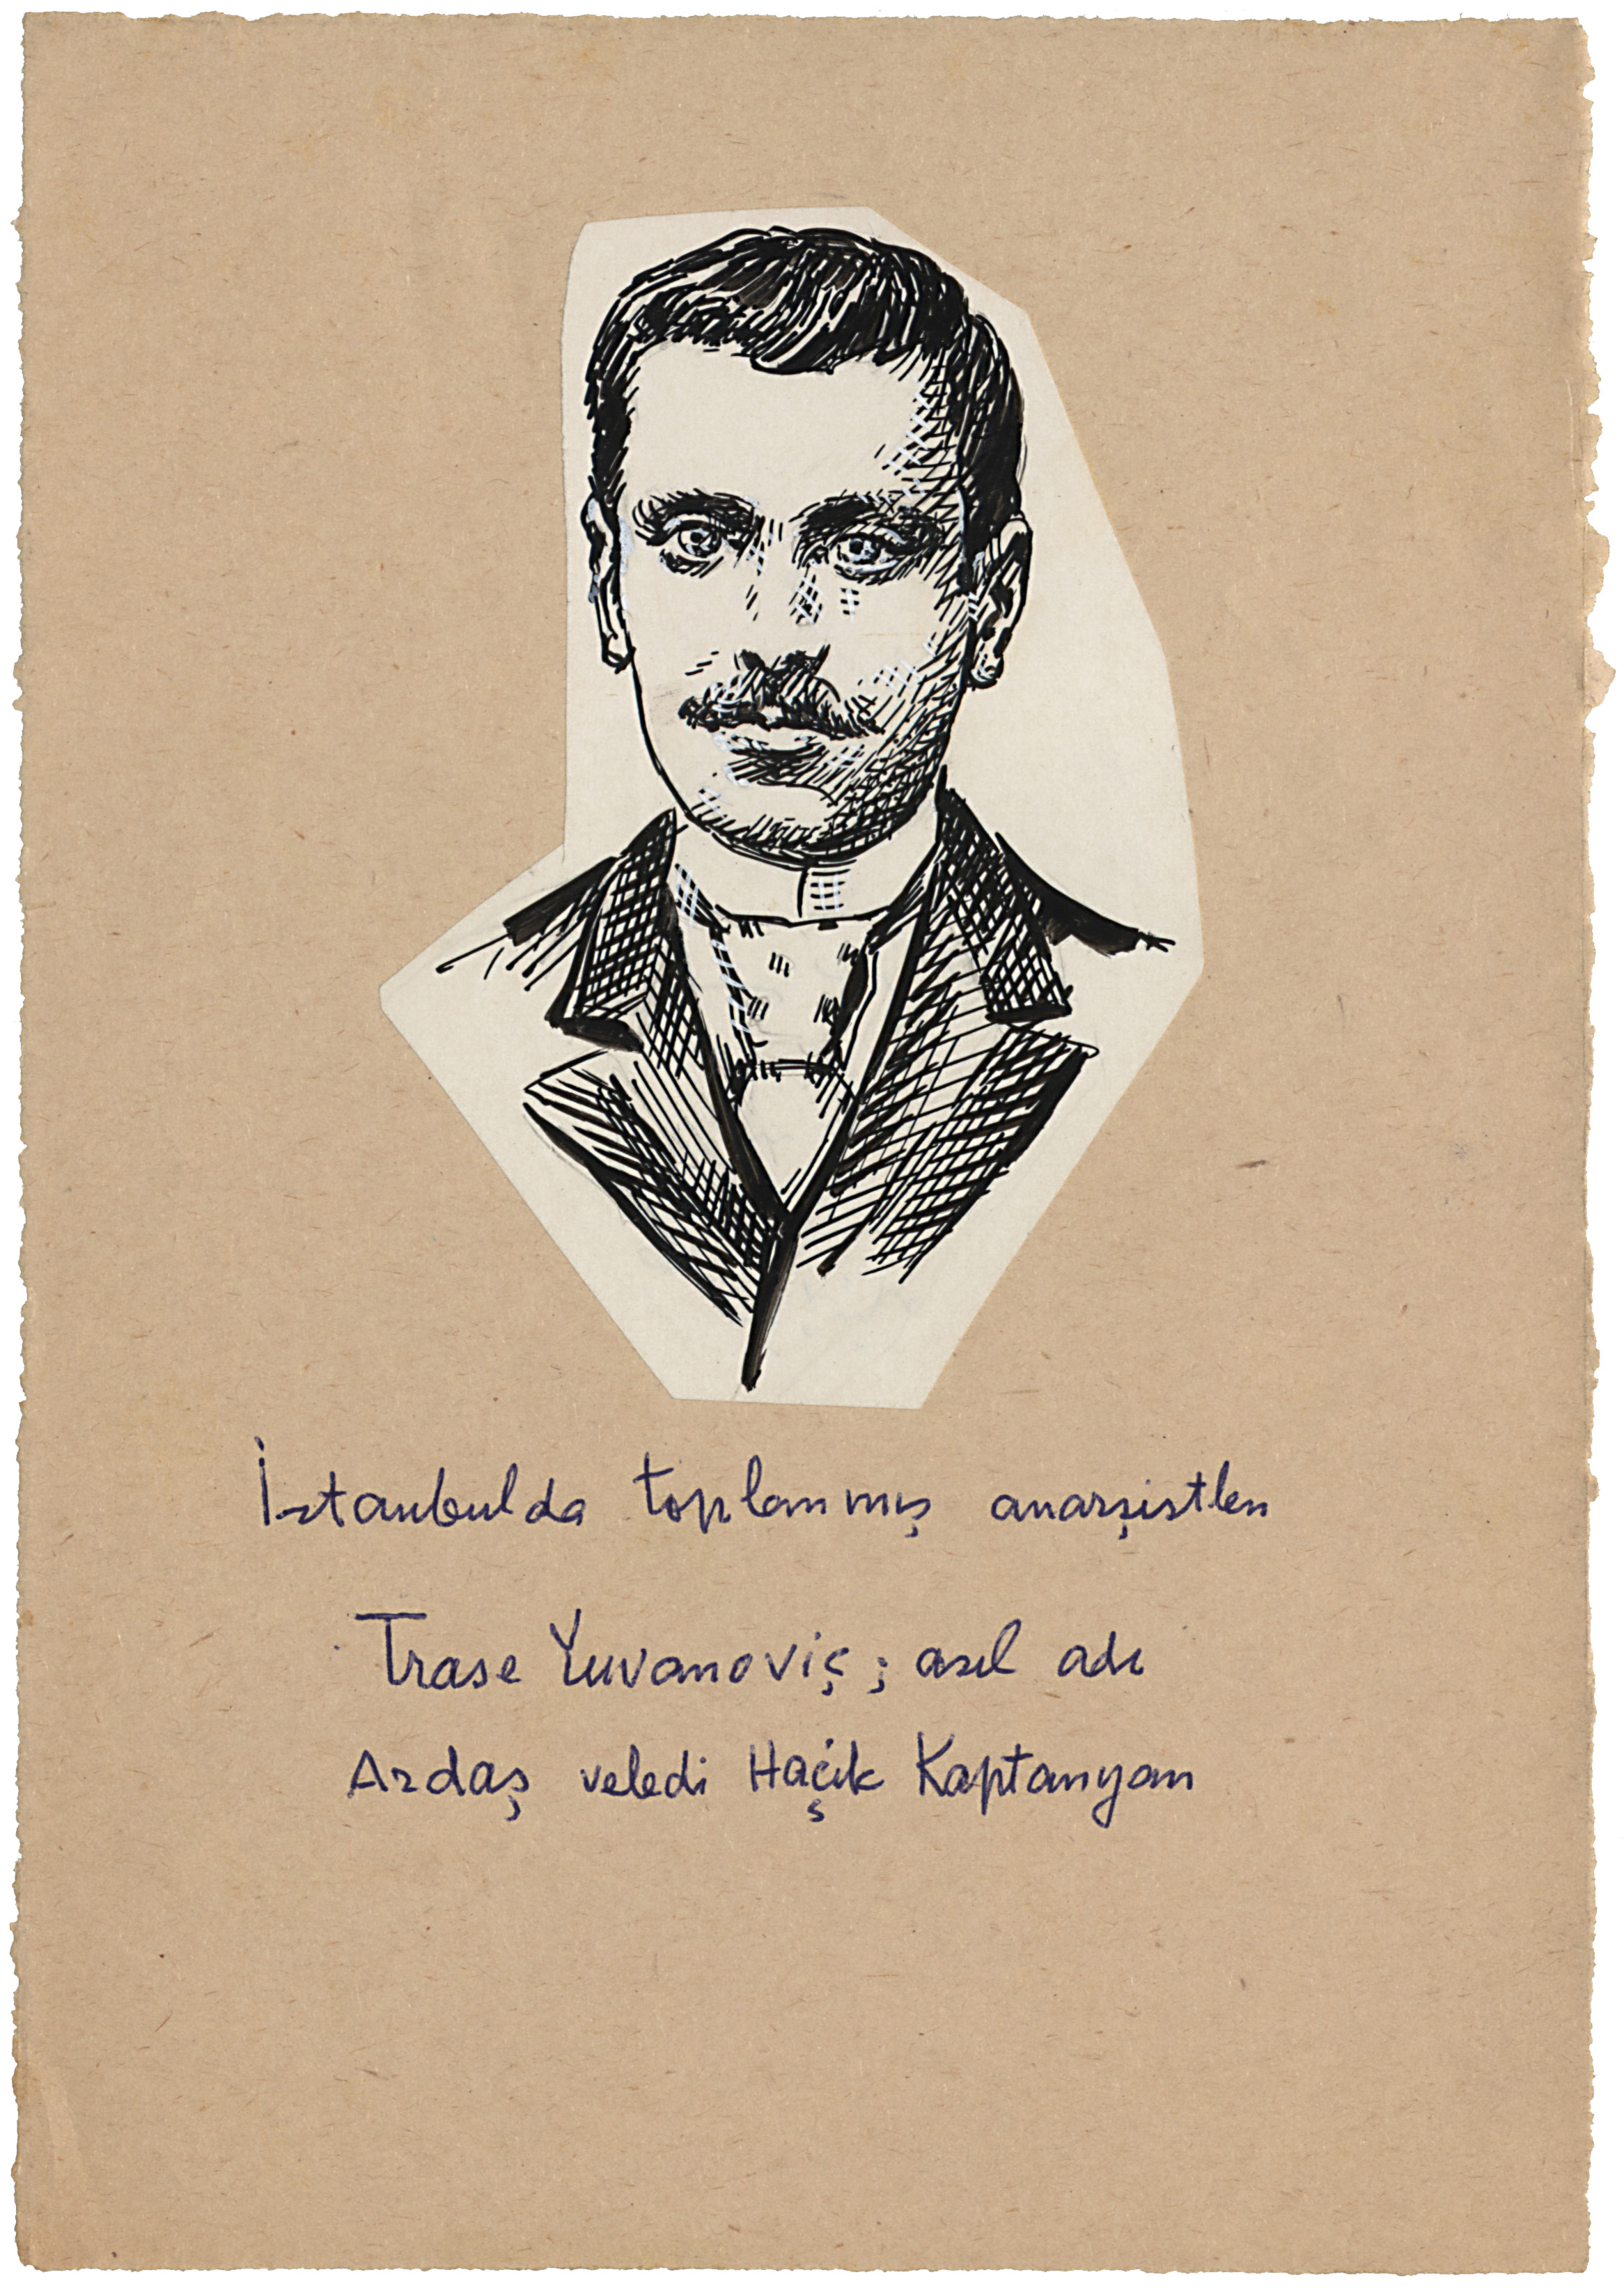 İstanbulda toplanmış anarşistlen
Trase Yuvanoviç; asıl adı
Ardaş veledi Haçik Kaptanyan